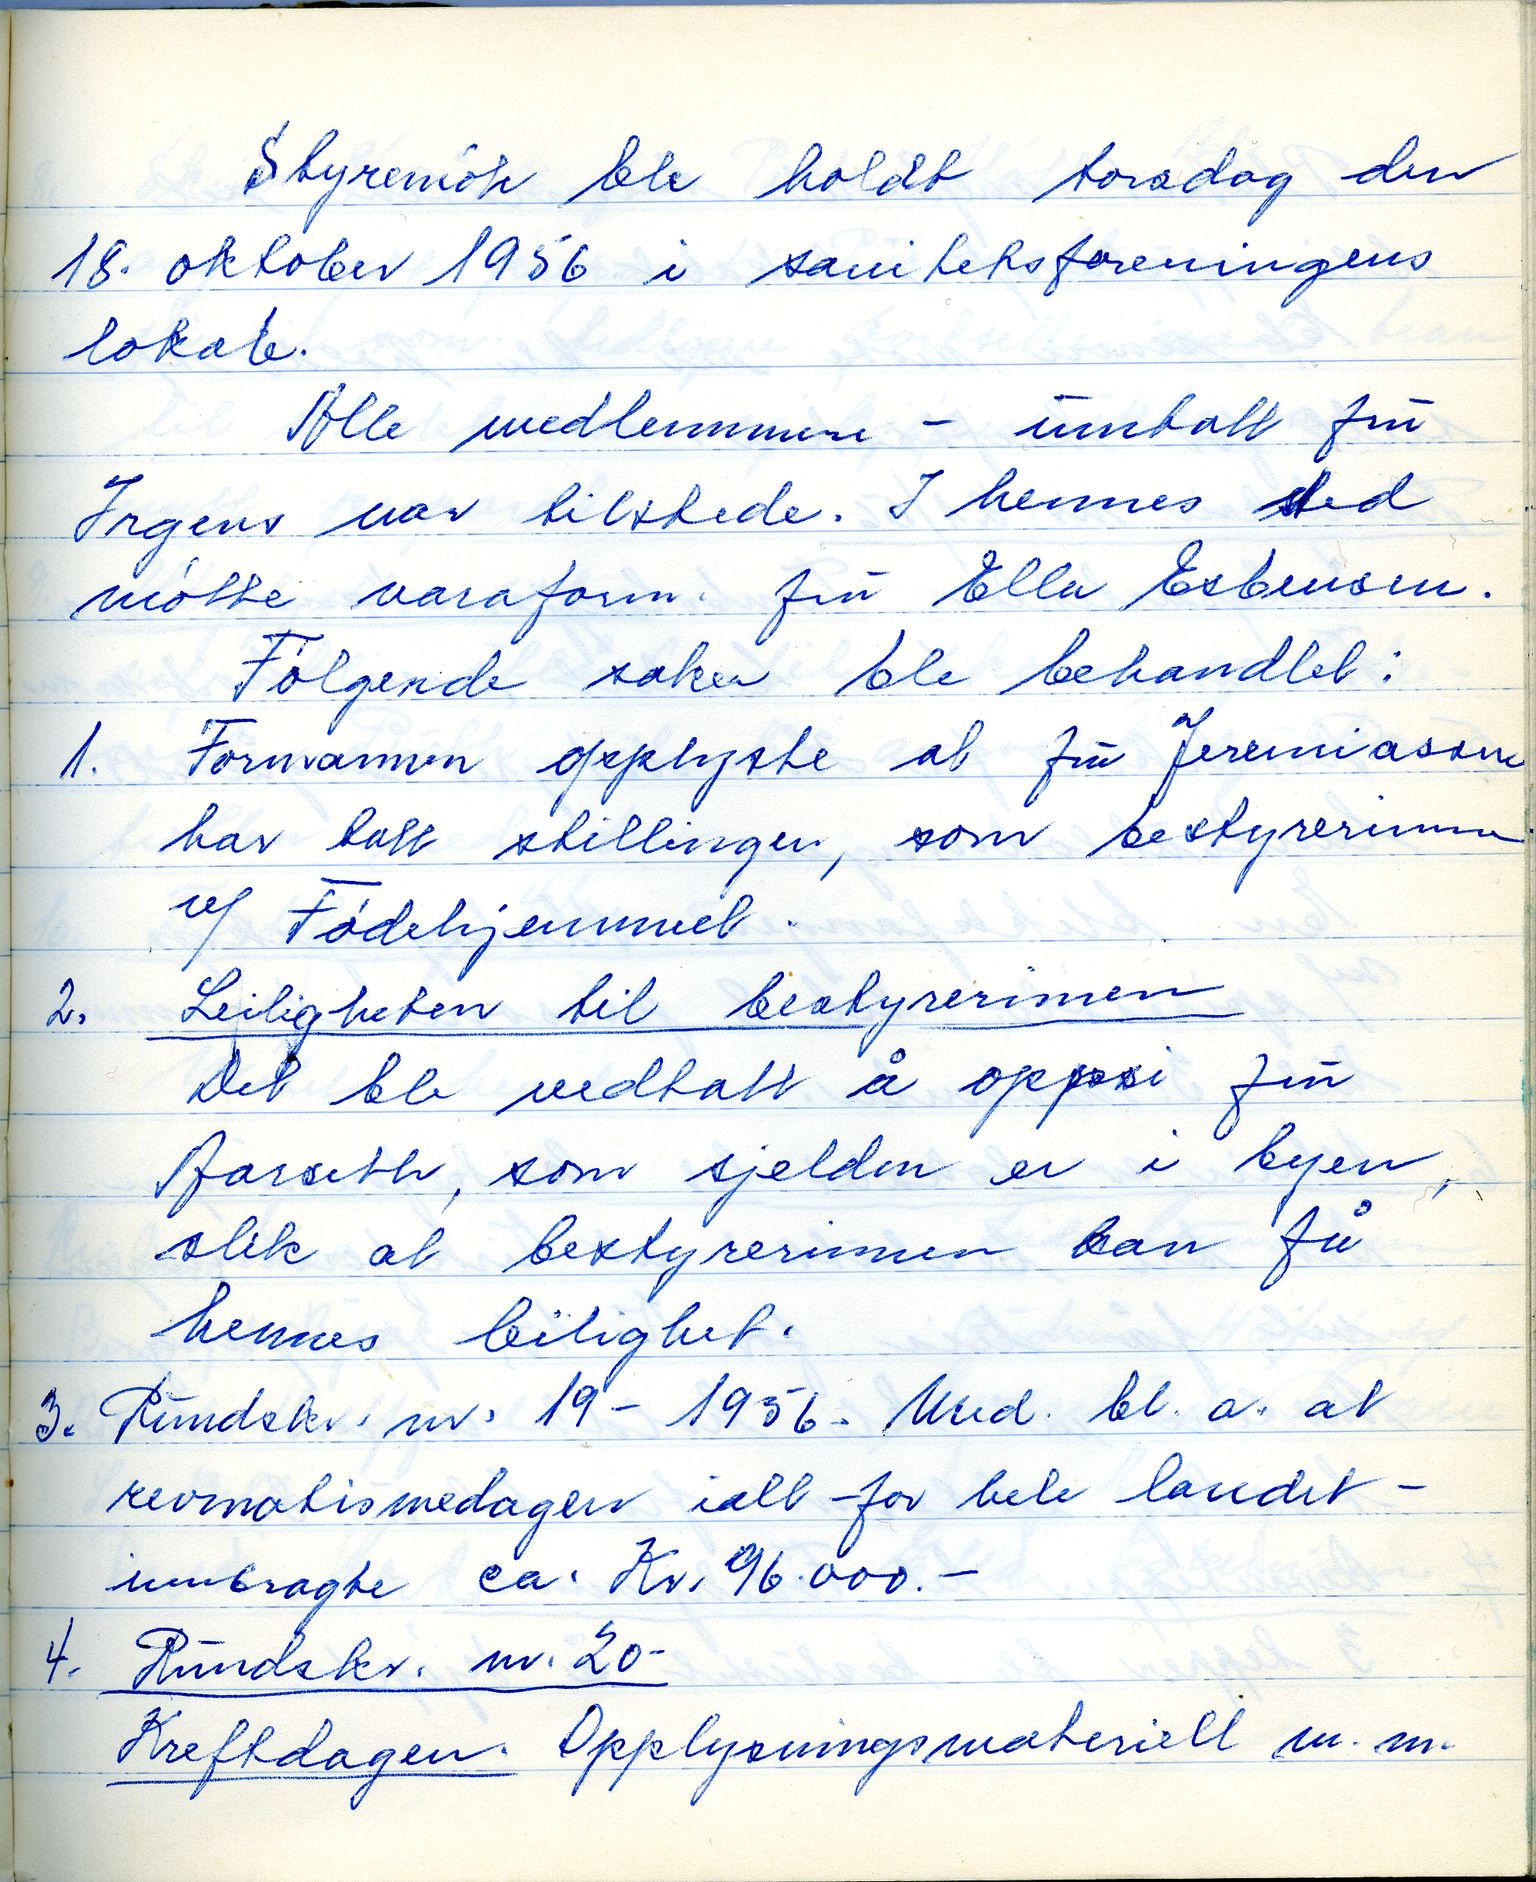 Styremöte ble holdt torsdag den
18. oktober 1956 i sanitetsforeningens
lokale.
Alle medlemmene - unntatt fru
Irgens var tilstede. I hennes sted
møtte varaform. fru Ella Esbensen.
Følgende saker ble behandlet:
1. Formannen opplyste at fru Jeremiassen
har tatt stillingen, som bestyrerinne
v/ Fødehjemmet.
2. Leiligheten til bestyrerinnen
Det ble vedtatt å oppsi fru
Barseth, som sjelden er i byen,
slik at bestyrerinnen kan få
hennes leilighet.
3. Rundskr. nr. 19 - 1956. Med. bl. a. at
revmatismedagen ialt - for hele landet -
innbragte ca. Kr. 96.000.-
4. Rundskr. nr. 20-
Kreftdagen. Opplysningsmateriell m. m.